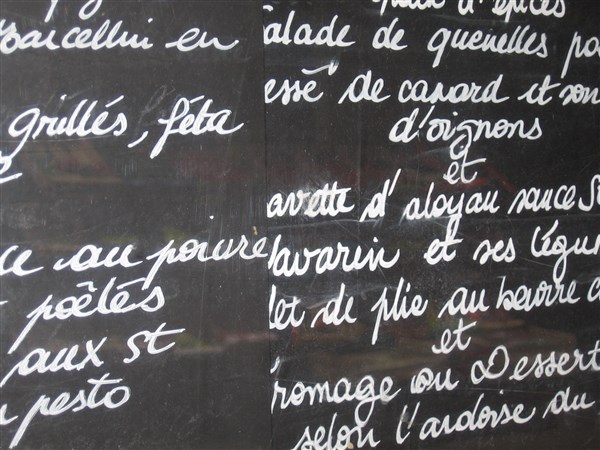 Marcellin en
grillés, féta
au poivre
poêlés
aux St
pesto
d'épices
alade de quenelles
essé de canard et son
d'oignons
et
avette d'aloyau sauce
Navarin et ses légu
let de plie au beurre
et
romage ou Dessert
selon l'ardoise du